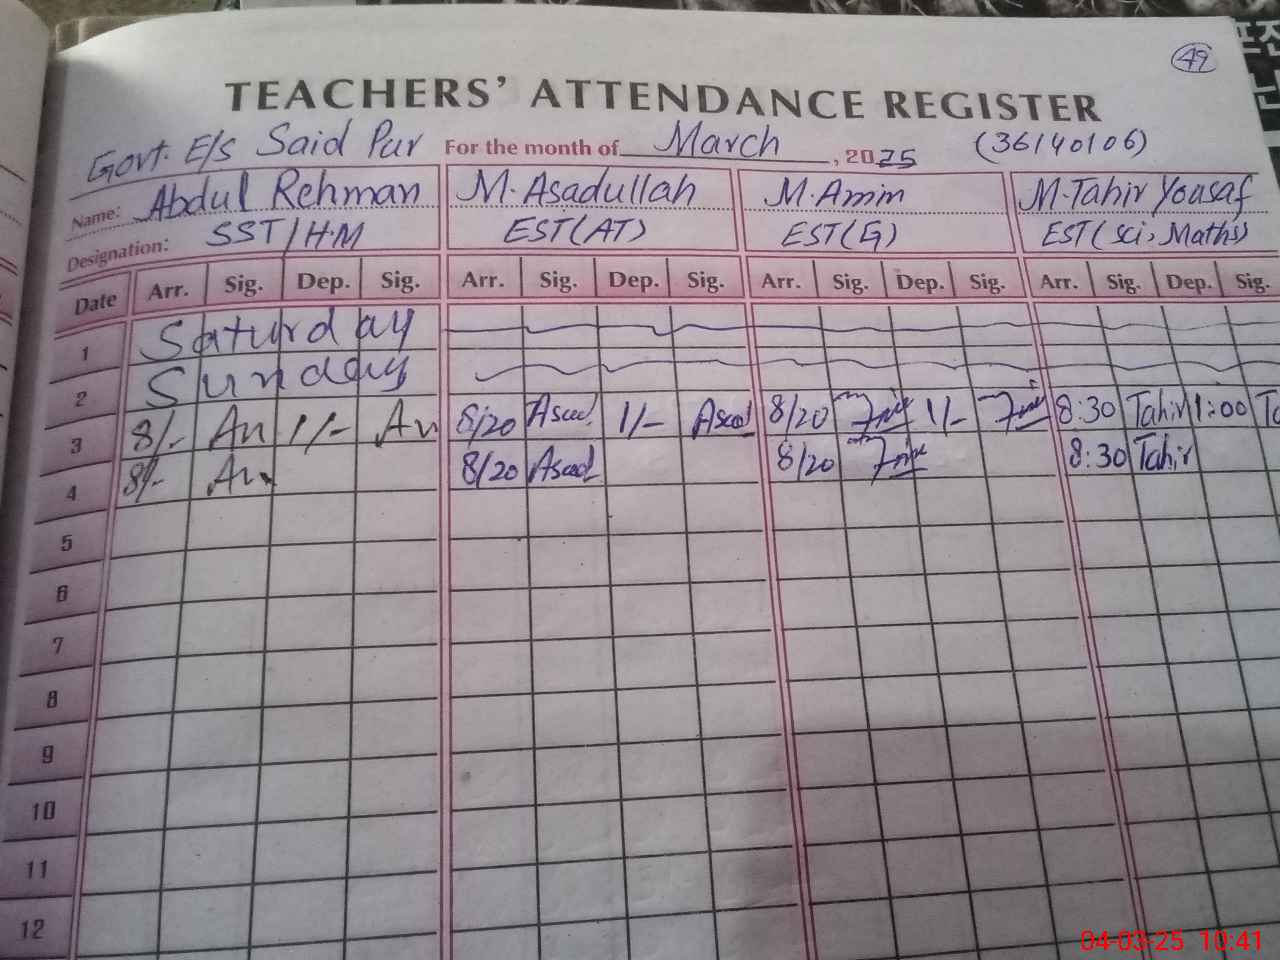 49
TEACHERS' ATTENDANCE REGISTER
Govt. E/s Said Pur For the month of March, 2025 (36140106)
Name: Abdul Rehman M. Asadullah M. Amin M. Tahir Yousaf
Designation: SST/H.M EST(AT) EST(G) EST(Sci, Maths)
Date Arr. Sig. Dep. Sig. Arr. Sig. Dep. Sig. Arr. Sig. Dep. Sig. Arr. Sig. Dep. Sig.
1 Saturday
2 Sunday
3 8/- 1/- 8/20 Asad 1/- Asad 8/20 1/- 8:30 Tahir 1:00
4 8/- 8/20 Asad 8/20 8:30 Tahir
5
6
7
8
9
10
11
12
04-03-25 10:41